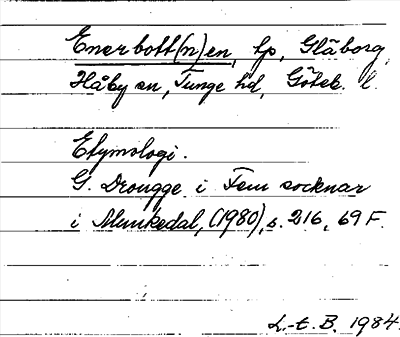 Enerbott(n)en, tp, Glåborg,
Håby sn, Tunge hd, Göteb. l.
Etymologi.
G. Drougge i Fem socknar
i Munkedal, (1980), s. 216, 69 F.
L.-E. B. 1984.